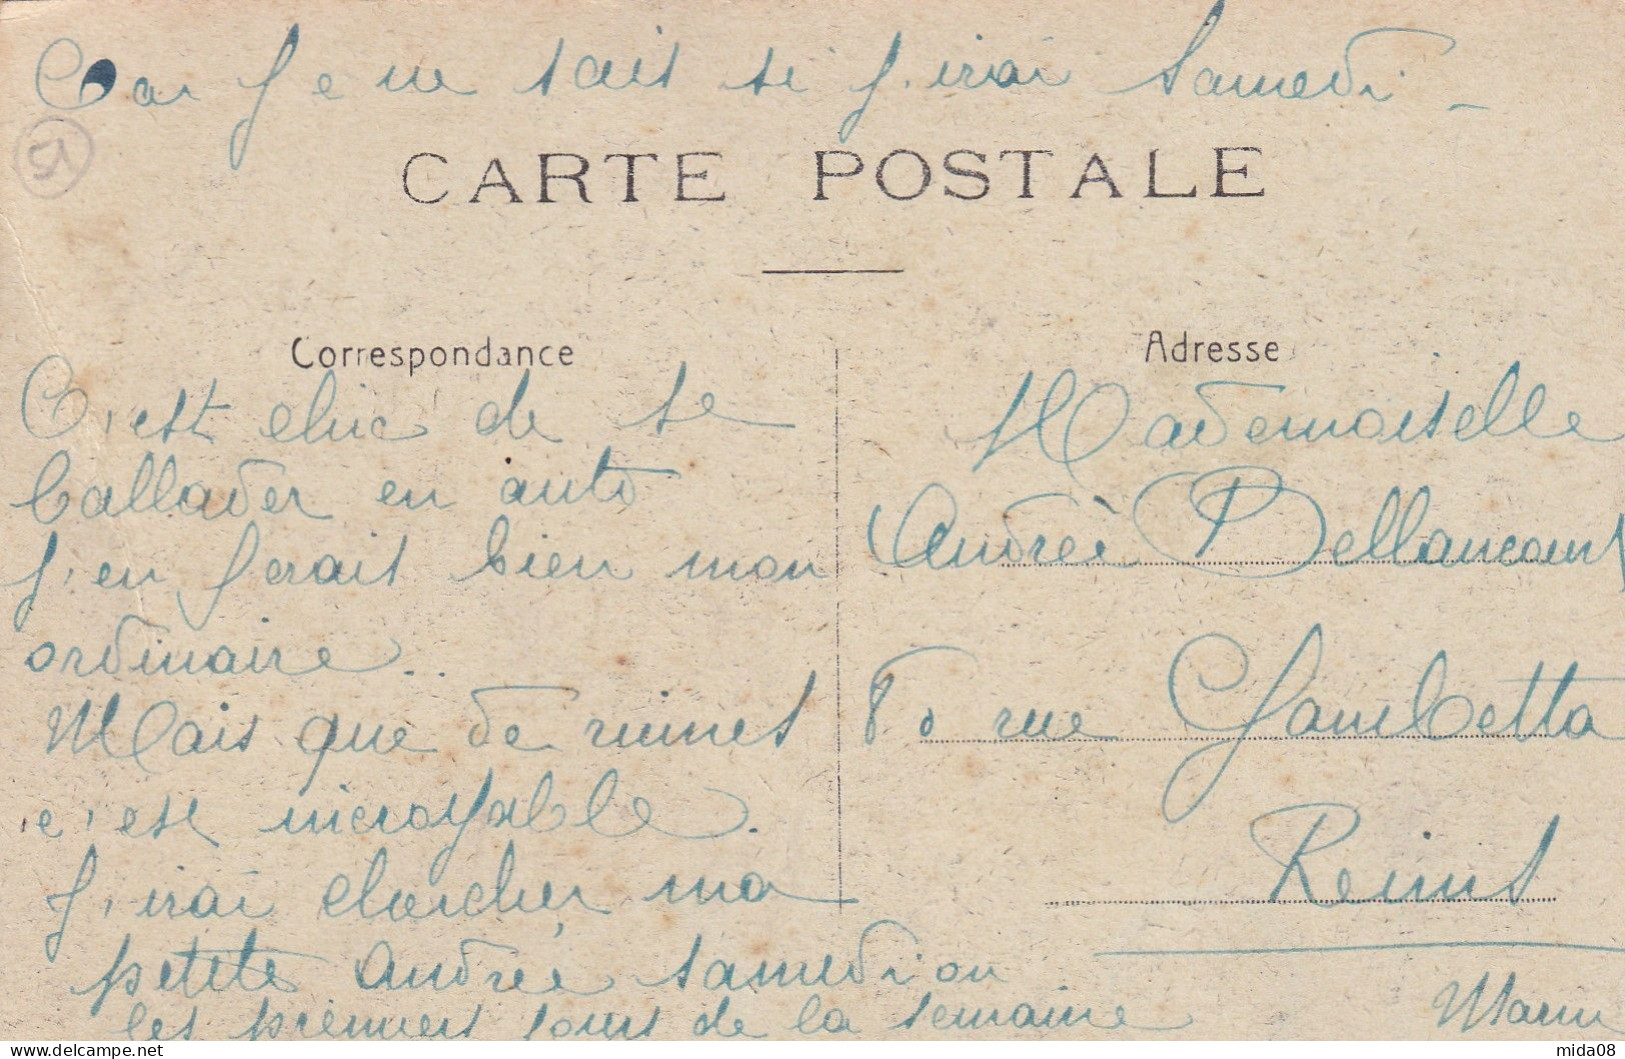 Car Je ne sais si J'irai Samedi -
51
CARTE POSTALE
Correspondance
Adresse
C'est chic de se
ballader en auto
J'en ferais bien mon
ordinaire..
Mais que de ruines
c'est incroyable.
J'irai chercher ma
petite Andrée samedi ou
les premiers jours de la semaine
Mademoiselle
Andrée Dellancourt
80 rue Gambetta
Reims
Marne
mida08